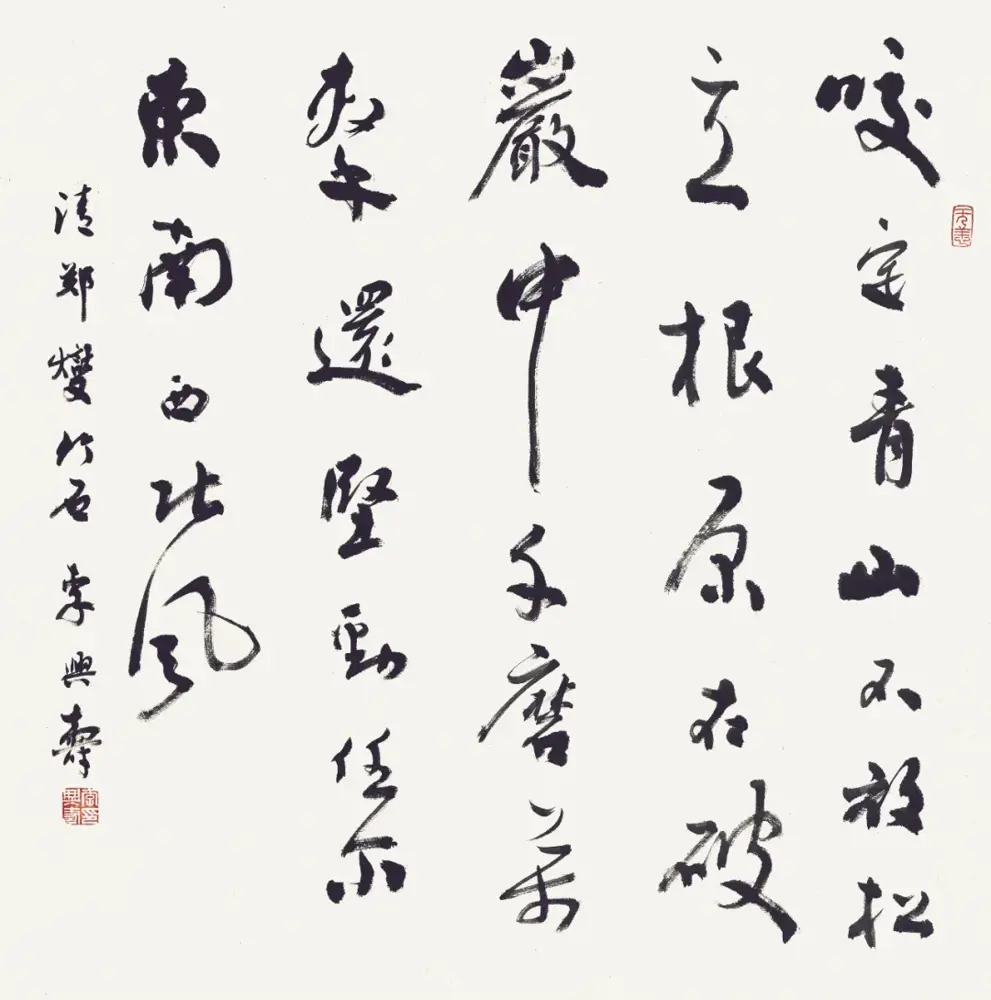 咬定青山不放松
立根原在破
巖中千磨萬
擊還堅勁任尔
東南西北風
清鄭燮竹石 李興壽